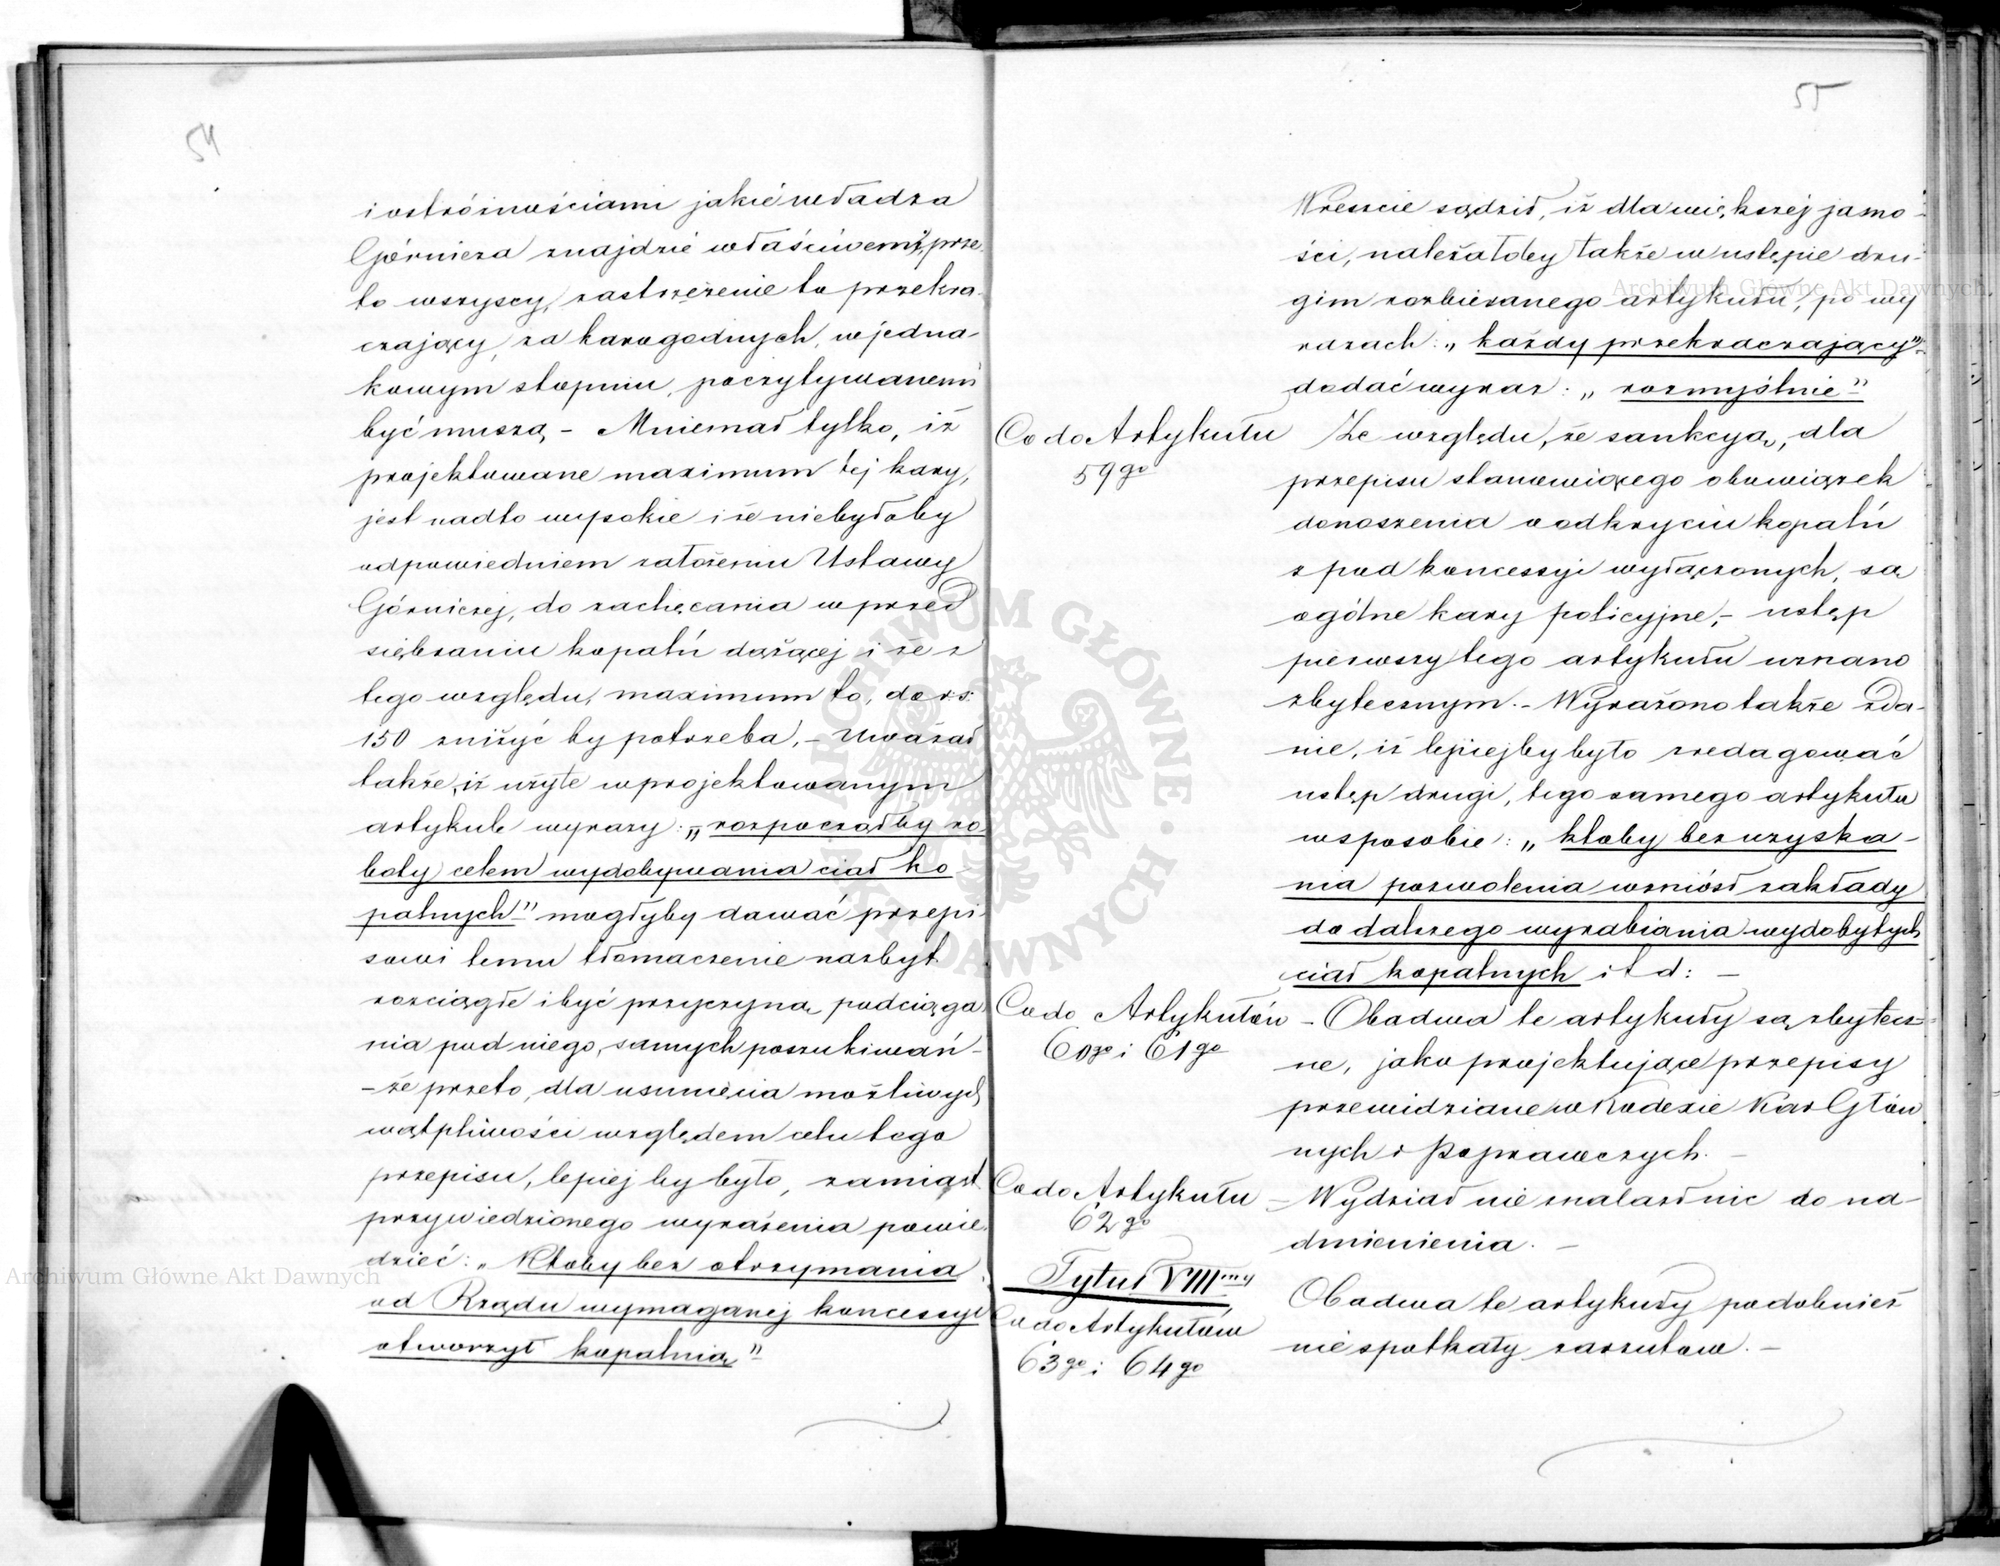 54
i ostróżnościami jakie władza
Górnicza znajdzie właściwemi", prze-
to wszyscy, zastrzeżenie to przekra-
czający, za karogodnych, w jedna-
kowym stopniu, poczytywanemi
być muszą, – Mniemał tylko, iż
projektowane maximum tej kary,
jest nadto wysokie i że niebyłoby
odpowiedniem założeniu Ustawy
Górniczej, do zachęcania w przed
siębraniu kopalń dążącej i że z
tego względu, maximum to, do rs:
150 zniżyć by potrzeba, – Uważał
także, iż użyte w projektowanym
artykule wyrazy: „rozpocząłby ro
boty celem wydobywania ciał ko
palnych" mogłyby dawać przepi
sowi temu tłomaczenie nazbyt
rozciągłe i być przyczyną podciąga
nia pod niego, samych poszukiwań –
– że przeto, dla usunięcia możliwych
wątpliwości względem celu tego
przepisu, lepiej by było, zamiast
przywiedzionego wyrażenia powie
dzieć: „Ktoby bez otrzymania
od Rządu wymaganej koncessyi
otworzył kopalnią"
55
Wreszcie sądził, iż dla większej jasno-
ści, należałoby także w ustępie dru-
gim rozbieranego artykułu, po wy
razach: „każdy przekraczający"
dodać wyraz: „rozmyślnie"
Co do Artykułu
59go
Ze względu, że sankcyą, dla
przepisu stanowiącego obowiązek
donoszenia o odkryciu kopalń
z pod koncessyi wyłączonych, są
ogólne kary policyjne, – ustęp
pierwszy tego artykułu uznano
zbytecznym. – Wyrażono także zda-
nie, iż lepiej by było zredagować
ustęp drugi, tego samego artykułu
w sposobie: „ktoby bez uzyska-
nia pozwolenia wzniósł zakłady
do dalszego wyrabiania wydobytych
ciał kopalnych i t d: –
Co do Artykułów
60go i 61go
– Obadwa te artykuły są zbytecz-
ne, jako projektujące przepisy
przewidziane w Kodexie Kar Głów
nych i Poprawczych. –
Co do Artykułu
62go
– Wydział nie znalazł nic do na-
dmienienia. –
Tytuł VIIImy
Co do Artykułów
63go i 64go
Obadwa te artykuły podobnież
nie spotkały zarzutów. –
Archiwum Główne Akt Dawnych
Archiwum Główne Akt Dawnych
ARCHIWUM GŁÓWNE · AKT DAWNYCH ·